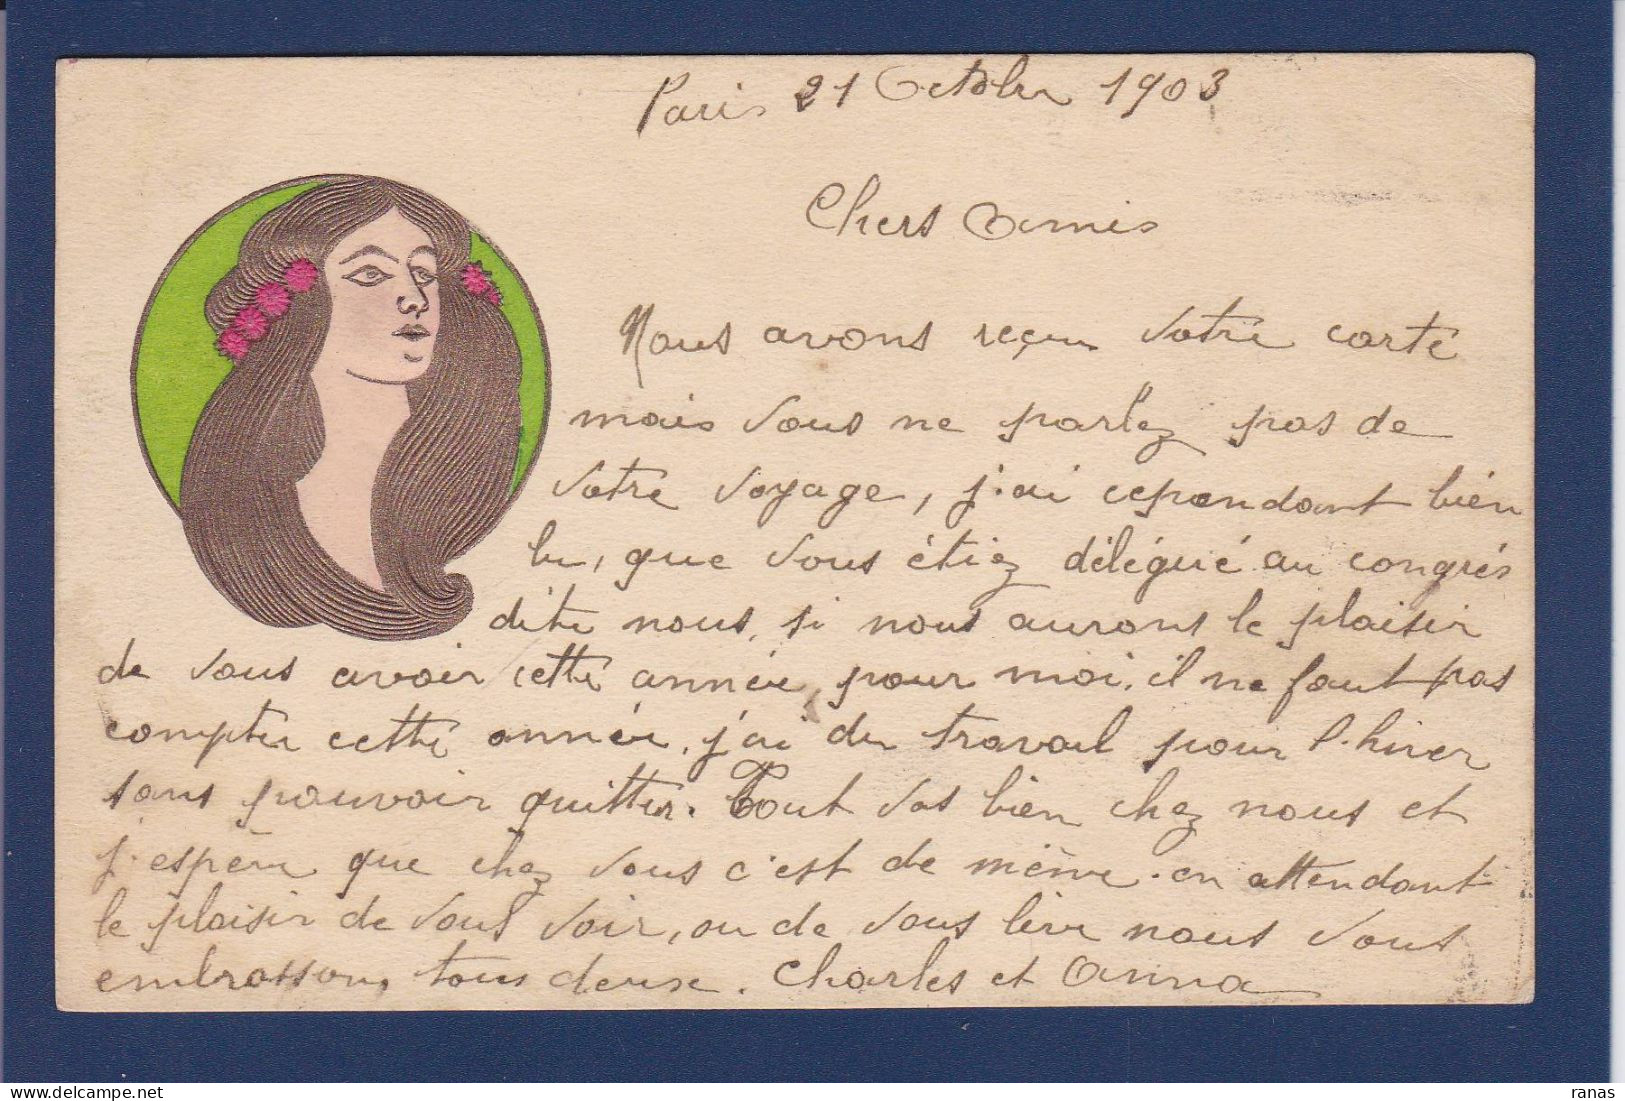 Paris 21 Octobre 1903
Chers Amis
Nous avons reçu votre carte
mais vous ne parlez pas de
votre voyage, j'ai cependant bien
lu, que vous étiez délégué au congrès
dite nous, si nous aurons le plaisir
de vous avoir cette année, pour moi, il ne faut pas
compter cette année, j'ai du travail pour l'hiver
sans pouvoir quitter. Tout vas bien chez nous et
j'espère que chez vous c'est de même. en attendant
le plaisir de vous voir, ou de vous lire nous vous
embrassons tous deux. Charles et Anna
ranas